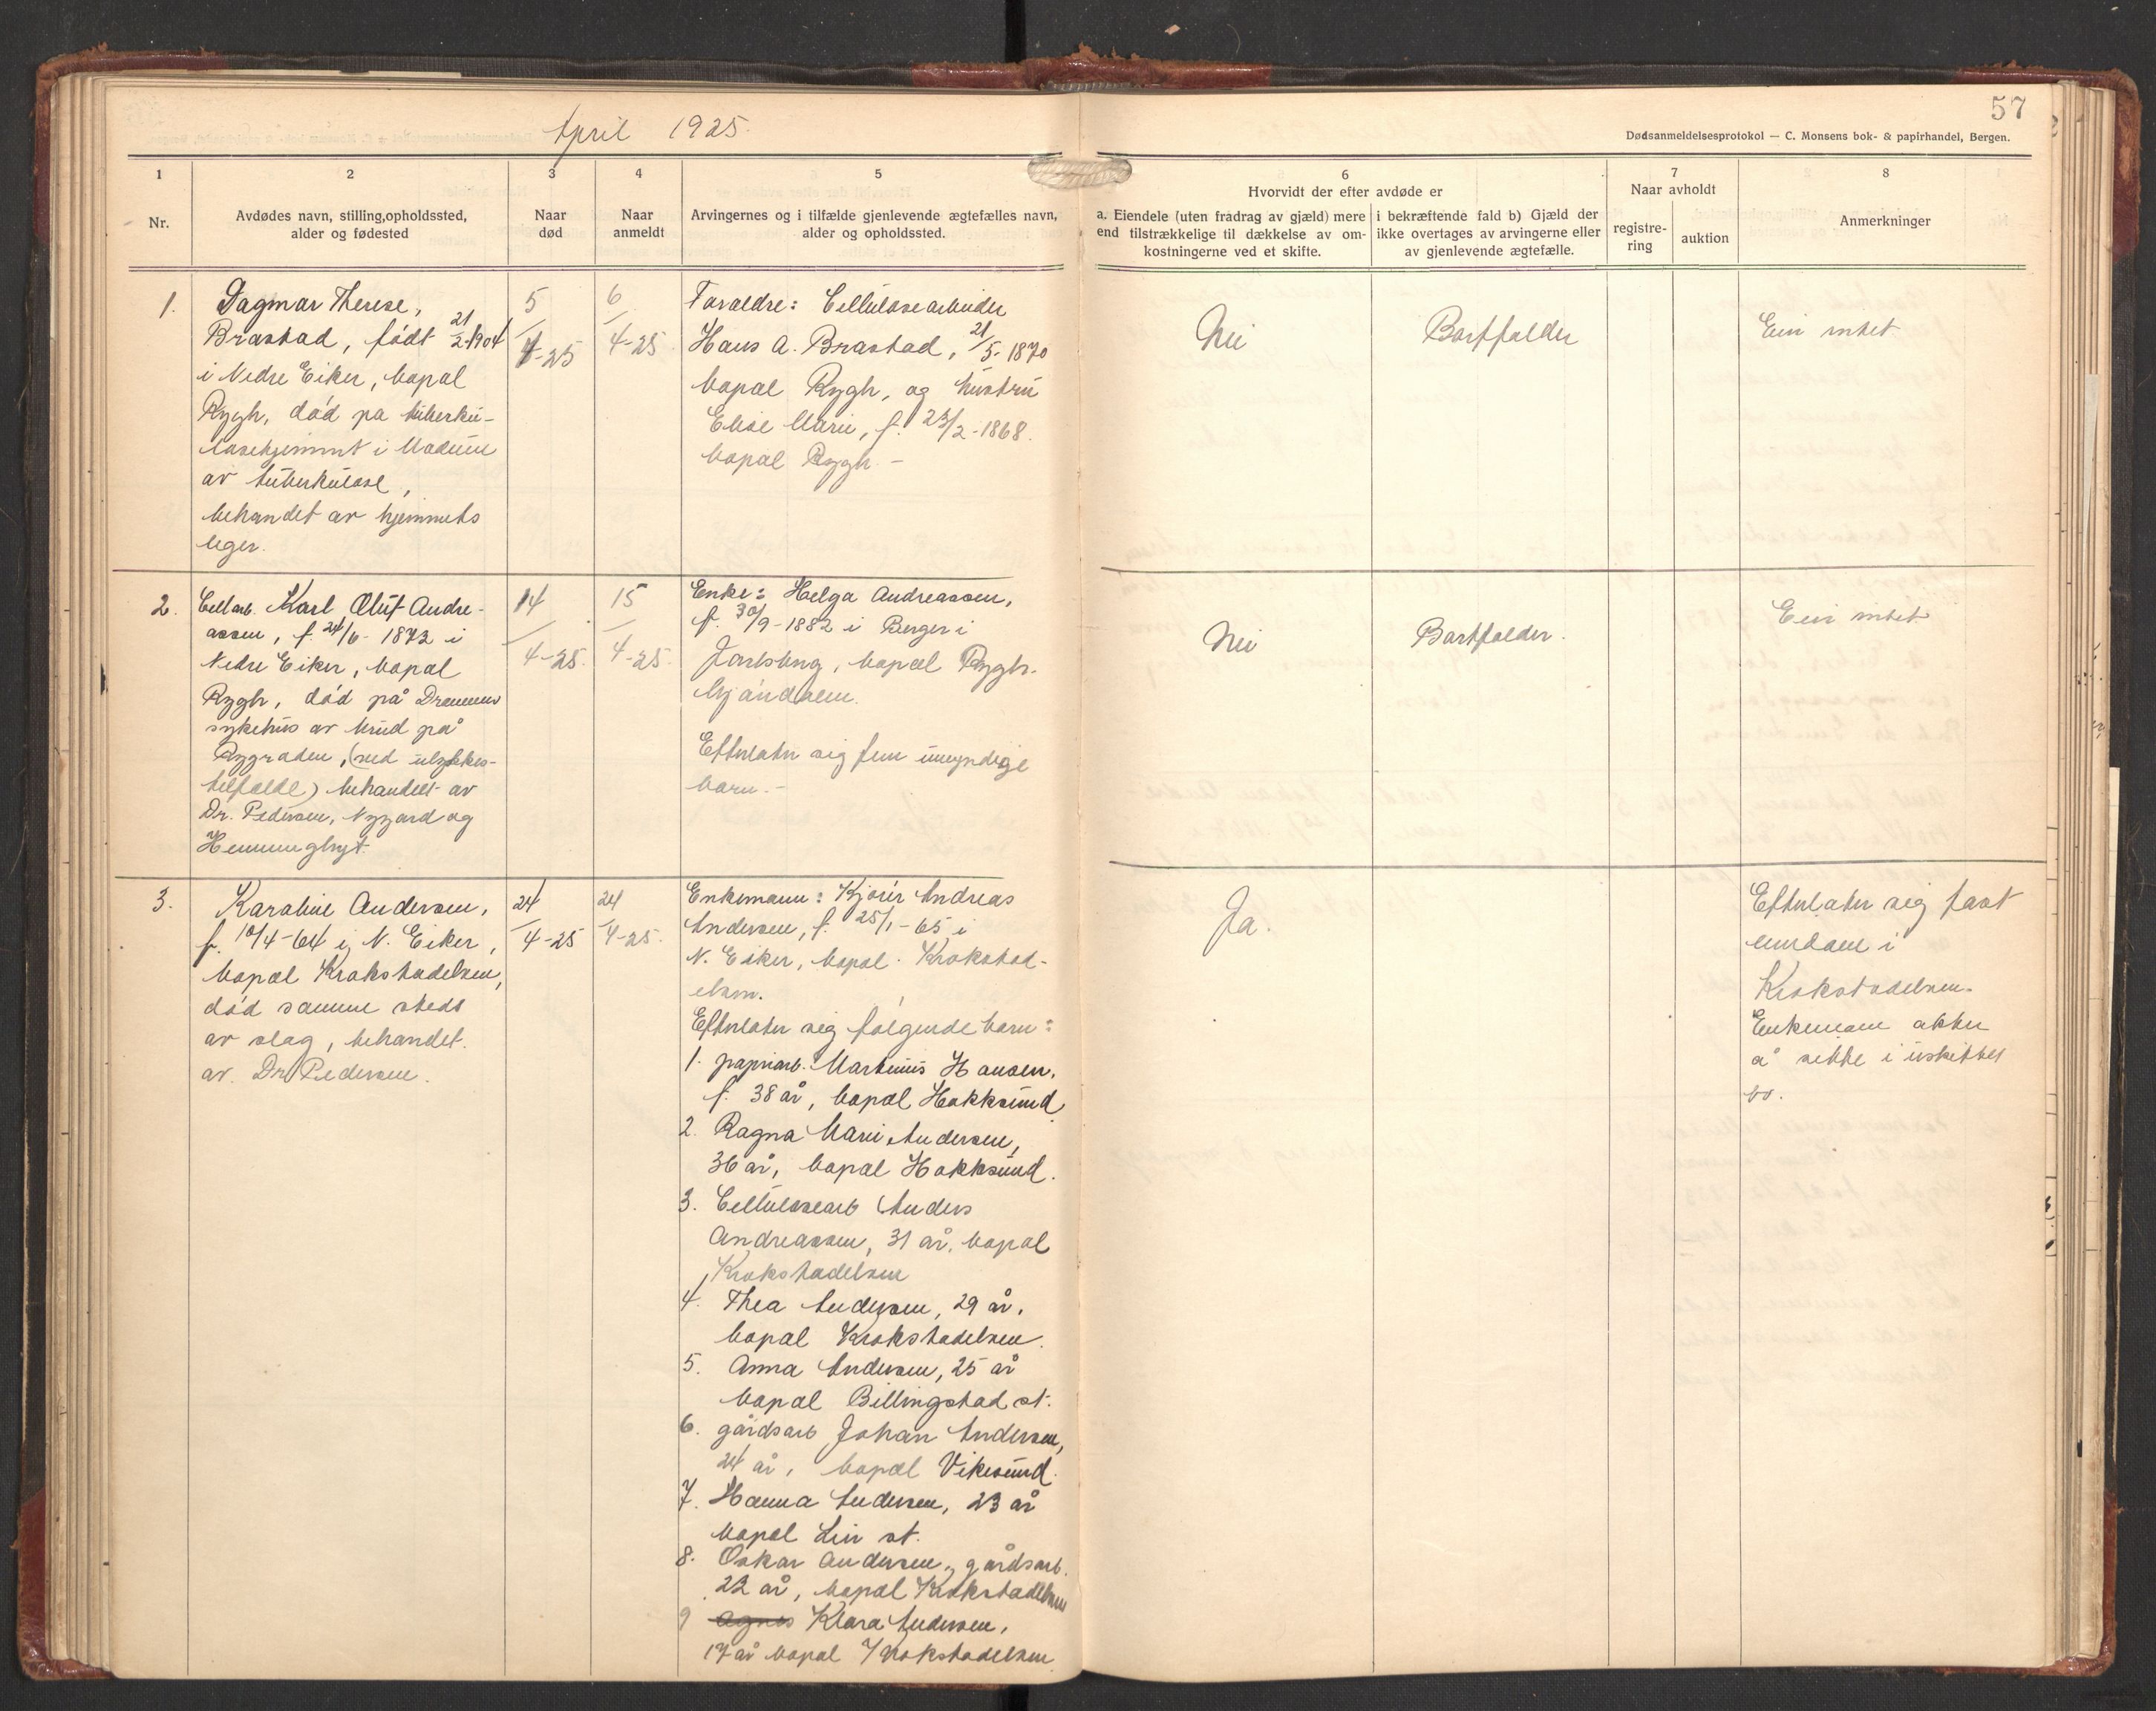 April 1925.
57
Dødsanmeldelsesprotokol — C. Monsens bok- & papirhandel, Bergen.
1
Nr.
2
Avdødes navn, stilling, opholdssted,
alder og fødested
3
Naar
død
4
Naar
anmeldt
5
Arvingernes og i tilfælde gjenlevende ægtefælles navn,
alder og opholdssted.
6
Hvorvidt der efter avdøde er
a. Eiendele (uten fradrag av gjæld) mere
end tilstrækkelige til dækkelse av om-
kostningerne ved et skifte.
i bekræftende fald b) Gjæld der
ikke overtages av arvingerne eller
av gjenlevende ægtefælle.
7
Naar avholdt
registre-
ring
auktion
8
Anmerkninger
1.
Dagmar Therese,
Brastad, født 21/2-1904
i Nedre Eiker, bopæl
Rygh, død pa tuberku-
losehjemmet i Modum
av tuberkulose,
behandet av hjemmets
leger.
5/4-25
6/4-25
Foraeldre: Cellulosearbeider
Hans A. Brastad, 21/5-1870
bopæl Rygh, og hustru
Elise Marie, f. 23/2-1868.
bopæl Rygh. -
Nei
Bortfalder
Eier intet
2.
Cellarb. Karl Oluf Andre-
assen, f. 24/6-1873 i
Nedre Eiker, bopæl
Rygh, død på Drammens
sykehus av brud på
Rygraden, (ved ulykkes-
tilfælde) behandlet av
Dr. Pedersen, Nygard og
14/4-25.
15/4-25.
Enke: Helga Andreassen,
f. 30/9-1882 i Berger i
Jarlsberg, bopæl Rygh.
Mjøndalen.
Efterlater sig fem umyndige
barn. -
Nei
Bortfalder.
Eier intet
3.
Karoline Andersen,
f. 10/4-64 i N. Eiker,
bopæl Krokstadelven,
død samme steds
av slag, behandet.
av. Dr Pedersen.
24/4-25
24/4-25.
Enkemann: Kjører Andreas
Andersen, f. 25/1-65 i
N. Eiker, bopæl. Krokstad-
elven.
Efterlater sig følgende barn:
1. papirarb. Martinius Hansen,
f. 38 år, bopæl Hokksund
2. Ragna Marie Andersen,
36 år, bopæl Hokksund.
3. Cellulosearb Anders
Andreassen, 31 år, bopæl
Krokstadelven
4. Thea Andersen, 29 år,
bopæl Krokstadelven.
5. Anna Andersen, 25 år
bopæl Billingstad st.
6. gårdsarb Johan Andersen,
24 år, bopæl Vikersund.
7. Hanna Andersen, 23 år
bopæl Lier st.
8. Oskar Andersen, gårdsarb.
22 år, bopæl Krokstadelven
9 Agnes Klara Andersen,
17 år bopæl Krokstadelven
Ja.
Efterlater sig fast
eiendom i
Krokstadelven.
Enkemann akter
å sitte i uskiftet
bo.